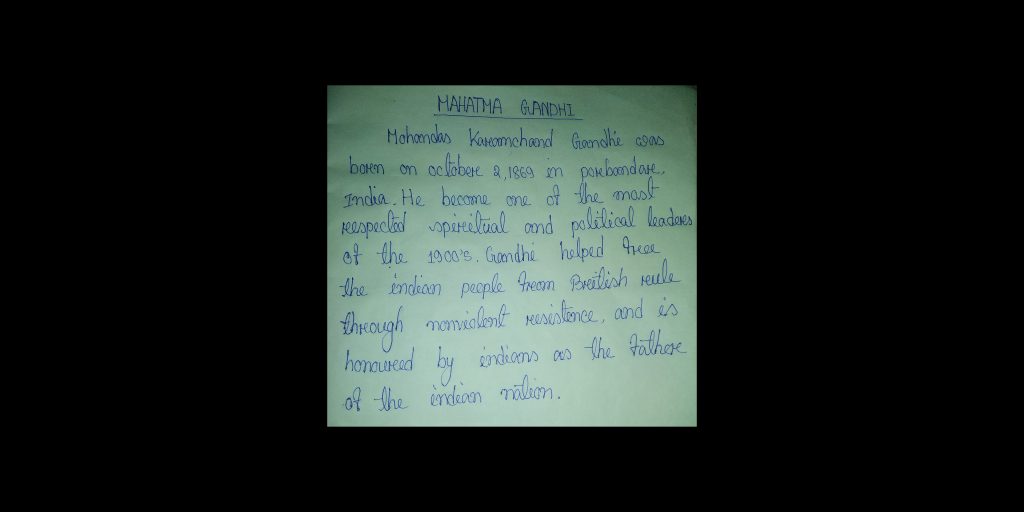 MAHATMA GANDHI
Mohandas Karamchand Gandhi was
born on october 2, 1869 in porbandar,
India. He become one of the most
respected spiritual and political leaders
of the 1900's. Gandhi helped free
the indian people from British rule
through nonviolent resistence, and is
honoured by indians as the Father
of the indian nation.